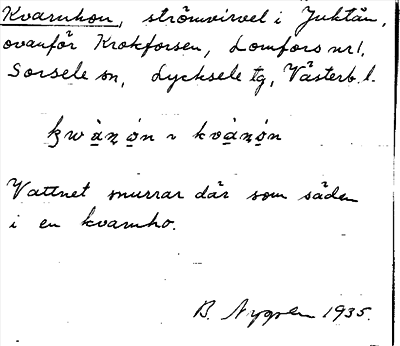 Kvarnhon, strömvirvel i Juktån,
ovanför Krokforsen, Lomfors nr 1,
Sorsele sn, Lycksele tg, Västerb. l.
Vattnet snurrar där som säden
i en kvarnho.
B. Nygren 1935.